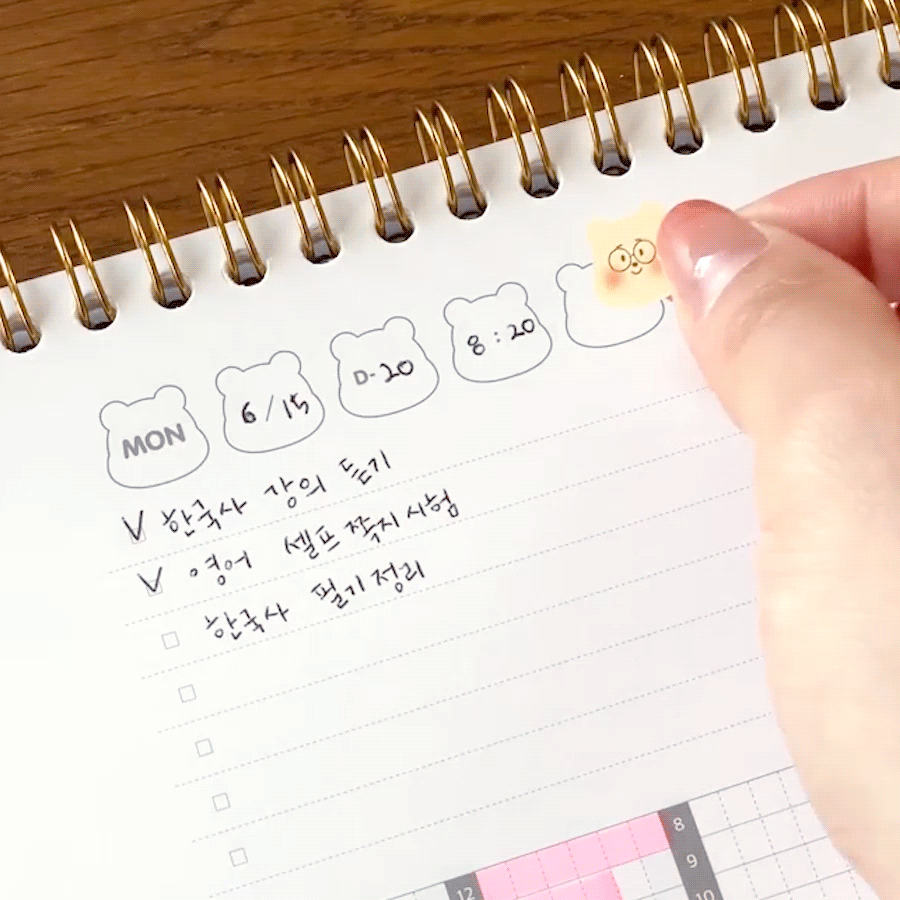 MON 6/15 D-20 8:20
V 한국사 강의 듣기
V 영어 셀프 쪽지 시험
한국사 필기 정리
8
12 9
10